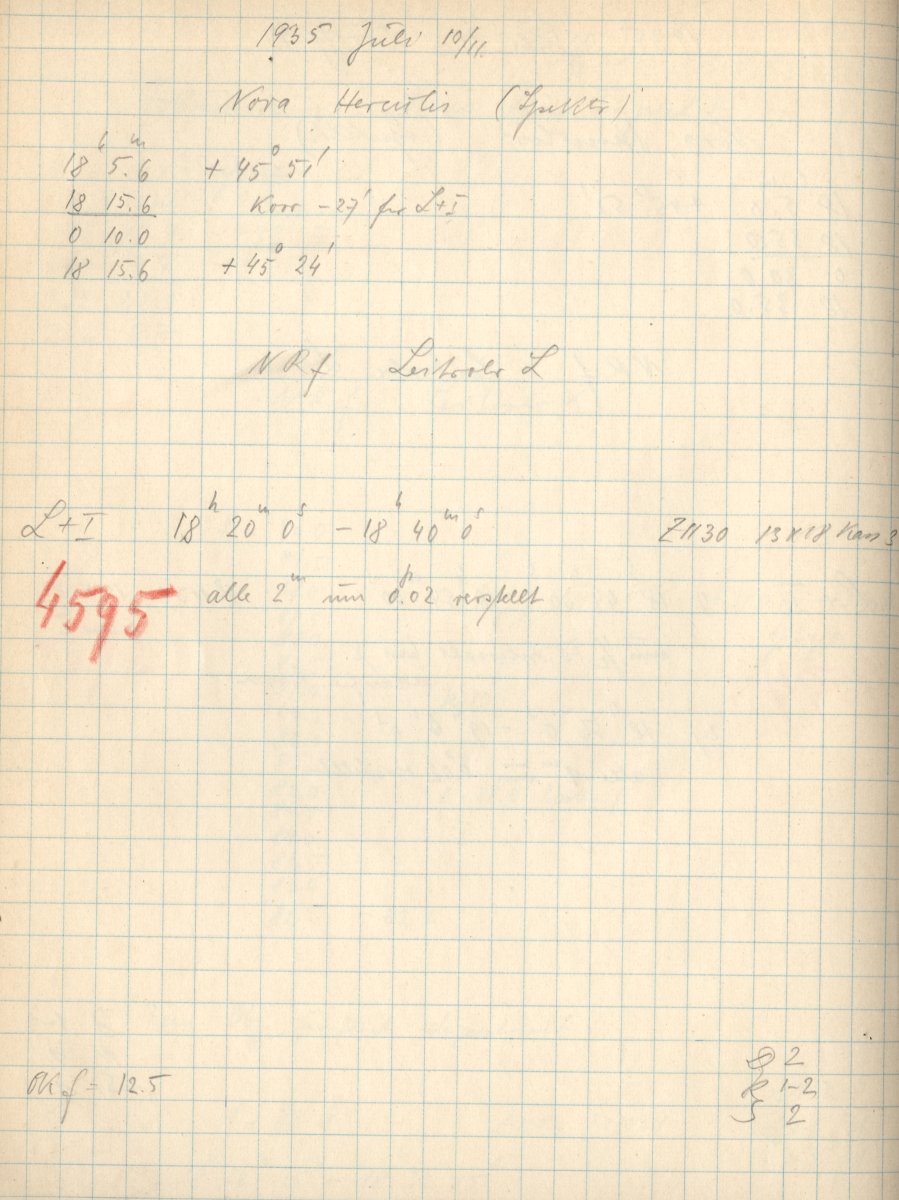 1935 Juli 10/11.
Nova Herculis (Spektr)
18ʰ 5.6ᵐ + 45° 51'
18 15.6 Korr -27' für L+I
0 10.0
18 15.6 + 45° 24'
NRf Leitrohr L
L+I 18ʰ 20ᵐ 0ˢ - 18ʰ 40ᵐ 0ˢ Z1130 13x18 Kass 3
4595 alle 2ᵐ um 0.02 verstellt
OKf = 12.5
2
1-2
2